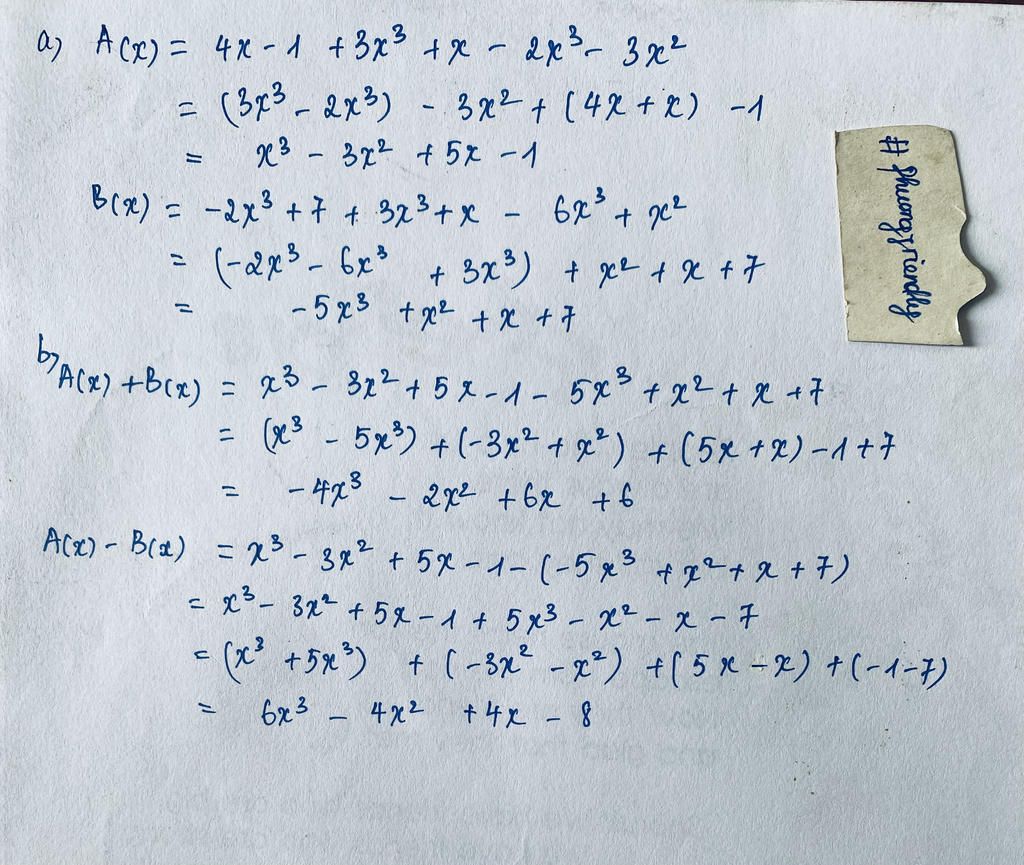 a) A(x) = 4x - 1 + 3x³ + x - 2x³ - 3x²
= (3x³ - 2x³) - 3x² + (4x + x) - 1
= x³ - 3x² + 5x - 1
B(x) = -2x³ + 7 + 3x³ + x - 6x³ + x²
= (-2x³ - 6x³ + 3x³) + x² + x + 7
= -5x³ + x² + x + 7
b) A(x) + B(x) = x³ - 3x² + 5x - 1 - 5x³ + x² + x + 7
= (x³ - 5x³) + (-3x² + x²) + (5x + x) - 1 + 7
= -4x³ - 2x² + 6x + 6
A(x) - B(x) = x³ - 3x² + 5x - 1 - (-5x³ + x² + x + 7)
= x³ - 3x² + 5x - 1 + 5x³ - x² - x - 7
= (x³ + 5x³) + (-3x² - x²) + (5x - x) + (-1-7)
= 6x³ - 4x² + 4x - 8